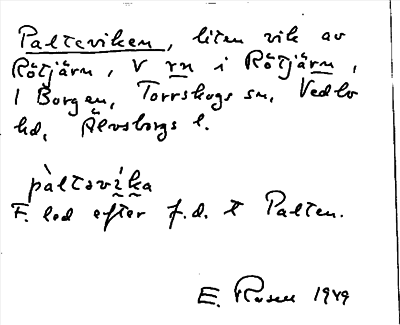 Palteviken, liten vik av
Rötjärn, V rn i Rötjärn,
1 Borgen, Torrskogs sn, Vedbo
hd, Älvsborgs l.
pàltəvíka
F. led efter f.d. t Palten.
E. Rosell 1949